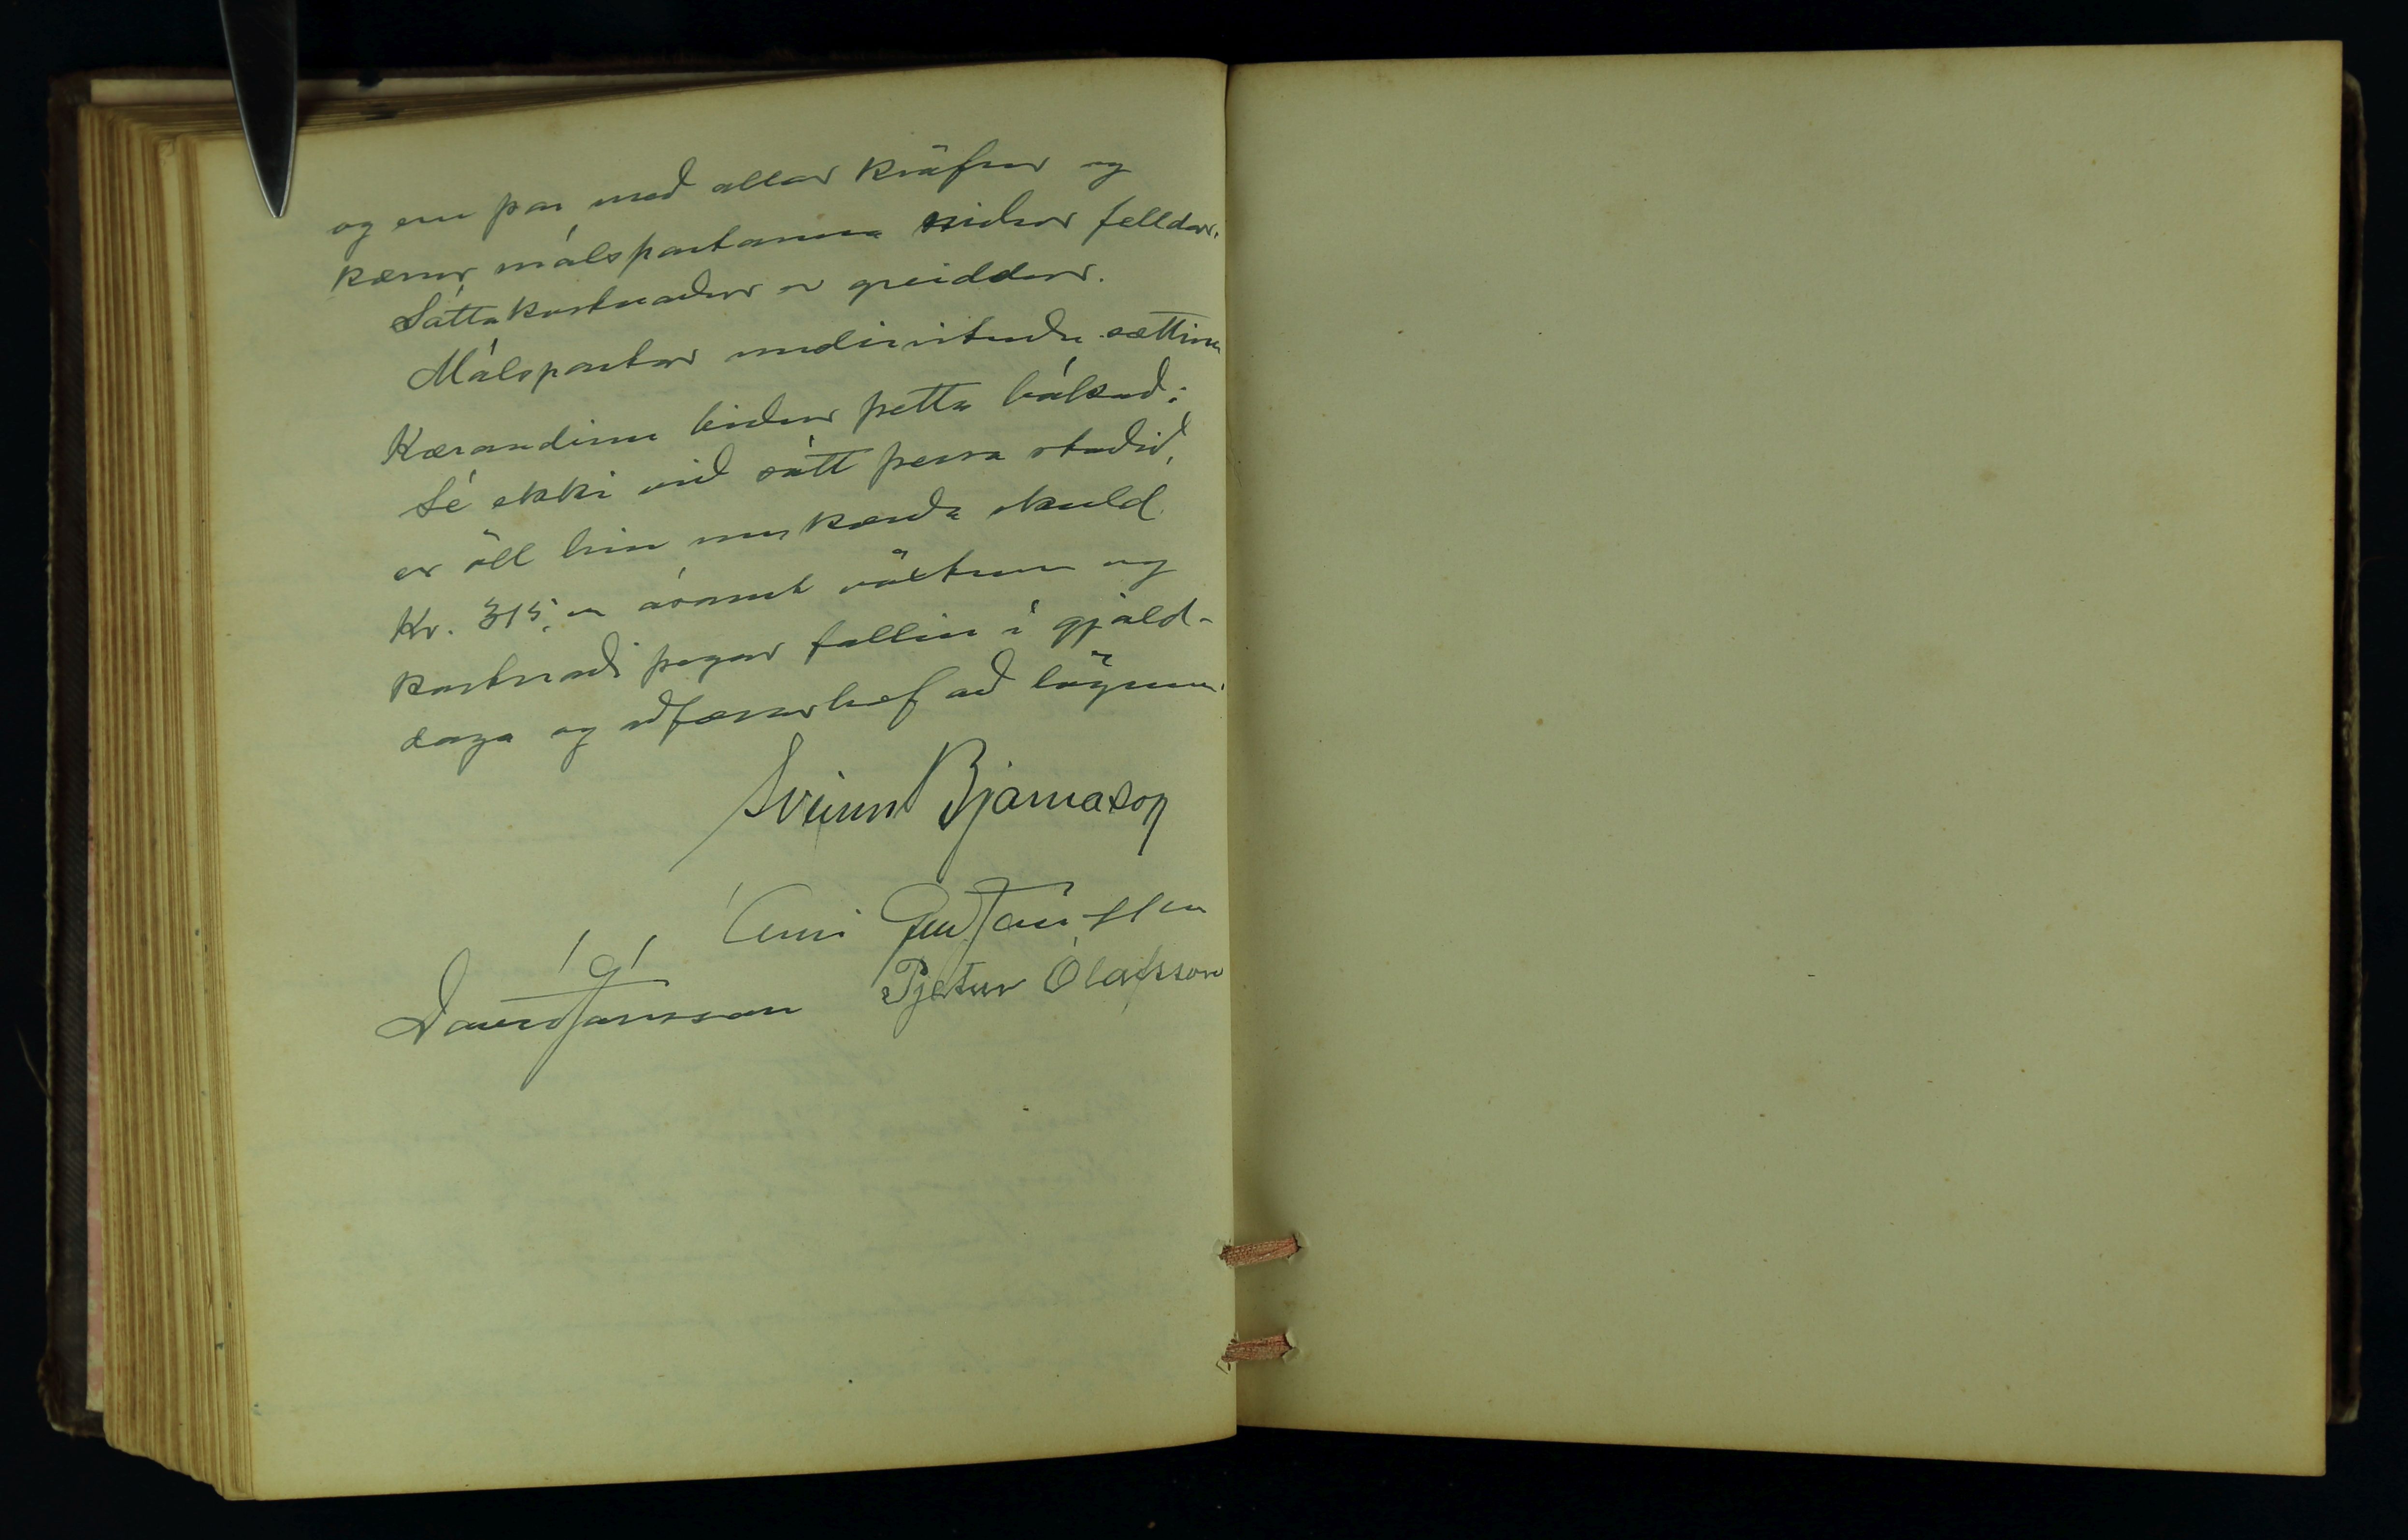 og eru þar með allar kräfur og
kærur málspartanna niður felldar.
Sáttakostnaður er greiddur.
Málspartar undirrituðu sættina
Kærandinn biður þetta bókað:
Sé ekki við sátt þessa staðið,
er öll hin umkærða skuld
Kr. 315, ásamt vöxtum og
kostnaði þegar fallin í gjald-
daga og aðfararhæf að lögum.
Sveinn Bjarnason
Árni
Davíð Jónsson Pjetur Ólafsson